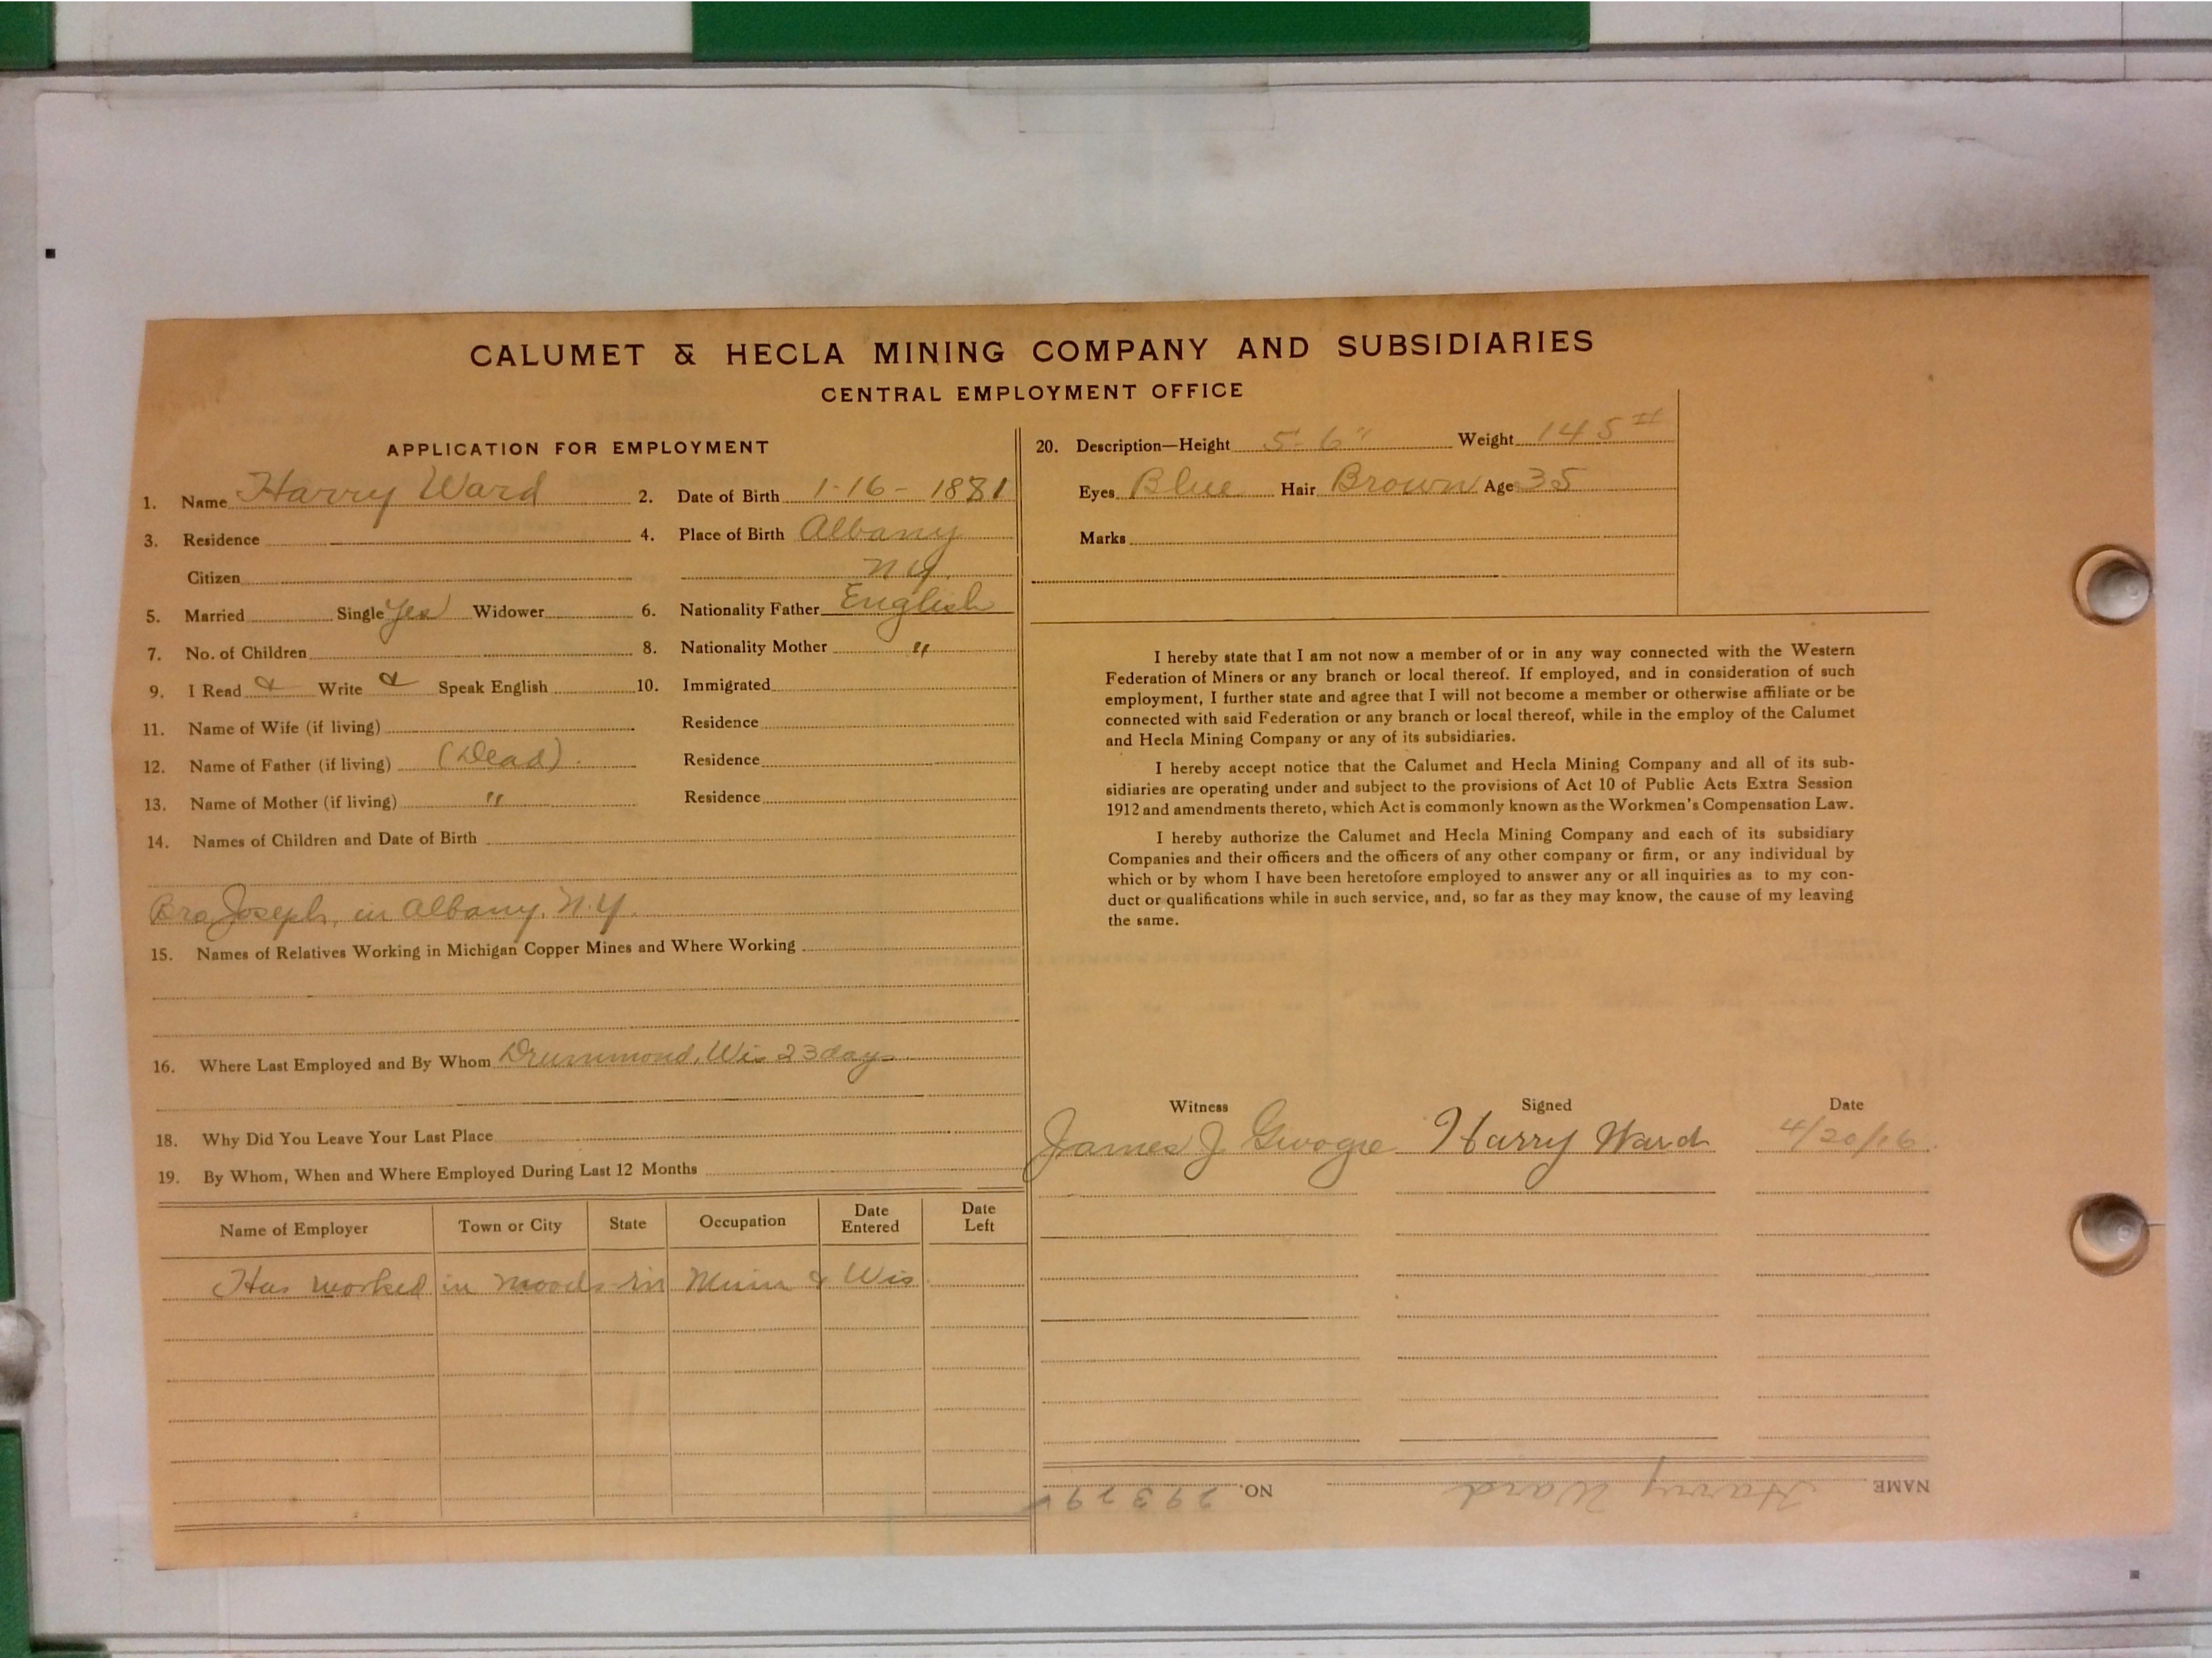 CALUMET & HECLA MINING COMPANY AND SUBSIDIARIES
CENTRAL EMPLOYMENT OFFICE
APPLICATION FOR EMPLOYMENT
1. Name Harry Ward 2. Date of Birth 1-16-1881
3. Residence 4. Place of Birth Albany
Citizen N.Y.
5. Married Single Yes Widower 6. Nationality Father English
7. No. of Children 8. Nationality Mother "
9. I Read & Write & Speak English 10. Immigrated
11. Name of Wife (if living) Residence
12. Name of Father (if living) (Dead). Residence
13. Name of Mother (if living) " Residence
14. Names of Children and Date of Birth
Bro Joseph, in Albany, N.Y.
15. Names of Relatives Working in Michigan Copper Mines and Where Working
16. Where Last Employed and By Whom Drummond, Wis 23 days
18. Why Did You Leave Your Last Place
19. By Whom, When and Where Employed During Last 12 Months
Name of Employer Town or City State Occupation Date Entered Date Left
Has worked in woods in Minn & Wis
20. Description—Height 5-6" Weight 145#
Eyes Blue Hair Brown Age 35
Marks
I hereby state that I am not now a member of or in any way connected with the Western
Federation of Miners or any branch or local thereof. If employed, and in consideration of such
employment, I further state and agree that I will not become a member or otherwise affiliate or be
connected with said Federation or any branch or local thereof, while in the employ of the Calumet
and Hecla Mining Company or any of its subsidiaries.
I hereby accept notice that the Calumet and Hecla Mining Company and all of its sub-
sidiaries are operating under and subject to the provisions of Act 10 of Public Acts Extra Session
1912 and amendments thereto, which Act is commonly known as the Workmen's Compensation Law.
I hereby authorize the Calumet and Hecla Mining Company and each of its subsidiary
Companies and their officers and the officers of any other company or firm, or any individual by
which or by whom I have been heretofore employed to answer any or all inquiries as to my con-
duct or qualifications while in such service, and, so far as they may know, the cause of my leaving
the same.
Witness Signed Date
James J. Harry Ward 4/20/16
NAME Harry Ward NO. 29379